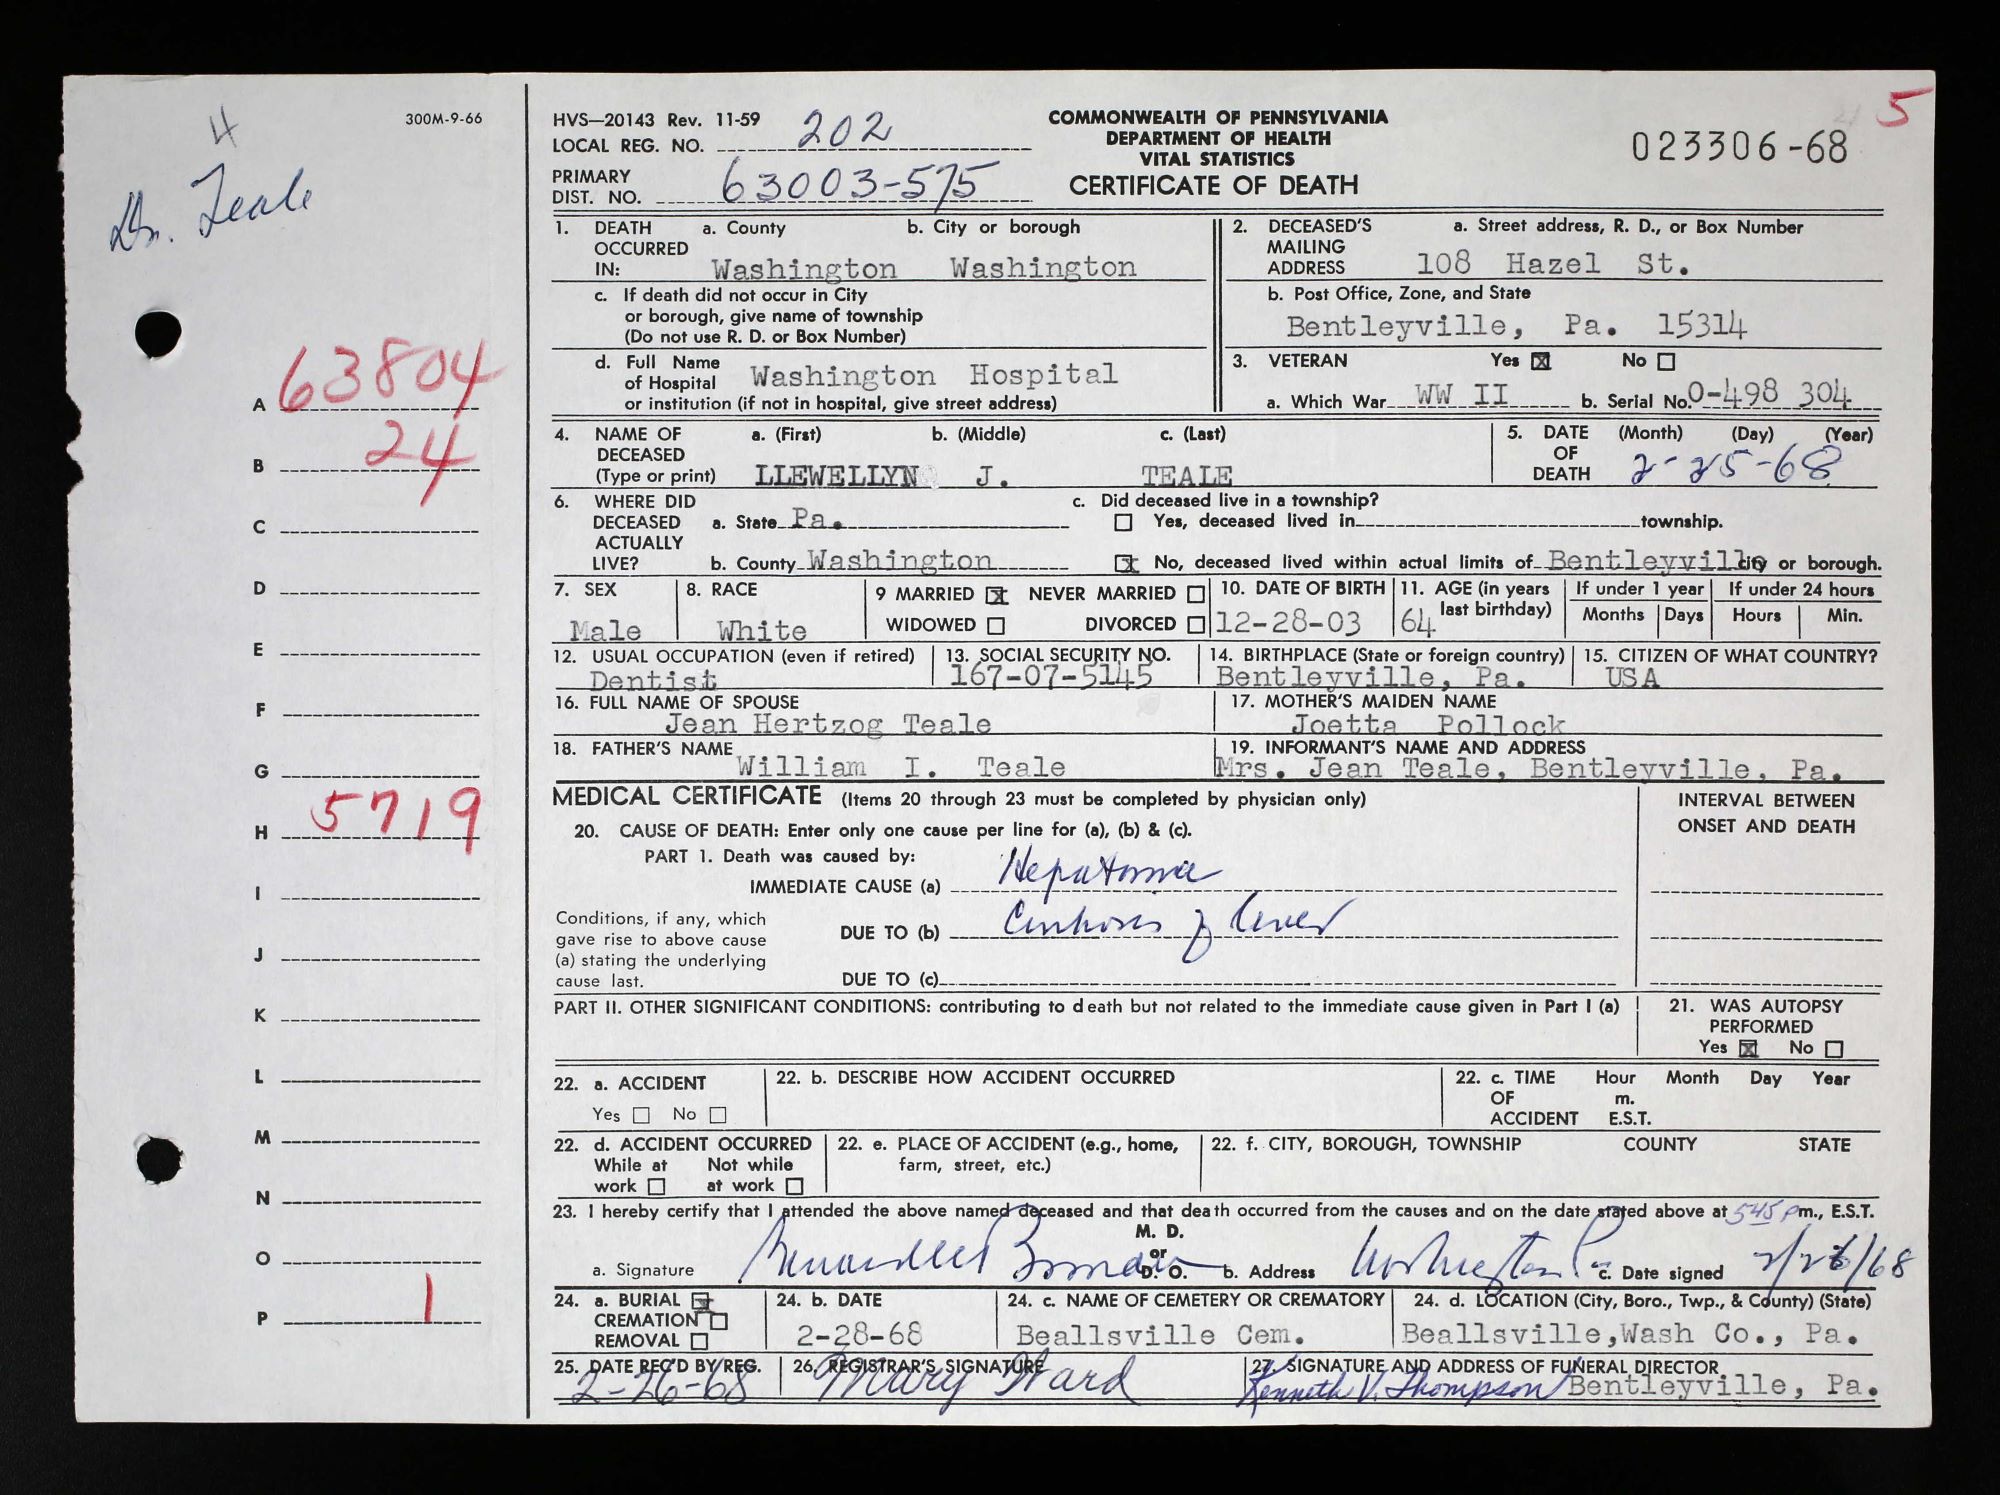 4
300M-9-66
Dr. Teale
A 63804
B 24
C
D
E
F
G
H 5719
I
J
K
L
M
N
O
P 1
HVS—20143 Rev. 11-59
LOCAL REG. NO. 202
PRIMARY
DIST. NO. 63003-575
COMMONWEALTH OF PENNSYLVANIA
DEPARTMENT OF HEALTH
VITAL STATISTICS
CERTIFICATE OF DEATH
5
023306-68
1. DEATH OCCURRED IN: a. County b. City or borough
Washington Washington
c. If death did not occur in City
or borough, give name of township
(Do not use R. D. or Box Number)
d. Full Name
of Hospital Washington Hospital
or institution (if not in hospital, give street address)
2. DECEASED'S MAILING ADDRESS a. Street address, R. D., or Box Number
108 Hazel St.
b. Post Office, Zone, and State
Bentleyville, Pa. 15314
3. VETERAN Yes ☒ No ☐
a. Which War WW II b. Serial No. O-498 304
4. NAME OF DECEASED (Type or print) a. (First) b. (Middle) c. (Last)
LLEWELLYN J. TEALE
5. DATE OF DEATH (Month) (Day) (Year)
2-25-68
6. WHERE DID DECEASED ACTUALLY LIVE? a. State Pa.
b. County Washington
c. Did deceased live in a township?
☐ Yes, deceased lived in township.
☒ No, deceased lived within actual limits of Bentleyville city or borough.
7. SEX
Male
8. RACE
White
9 MARRIED ☒ NEVER MARRIED ☐
WIDOWED ☐ DIVORCED ☐
10. DATE OF BIRTH
12-28-03
11. AGE (in years last birthday)
64
If under 1 year
Months Days
If under 24 hours
Hours Min.
12. USUAL OCCUPATION (even if retired)
Dentist
13. SOCIAL SECURITY NO.
167-07-5145
14. BIRTHPLACE (State or foreign country)
Bentleyville, Pa.
15. CITIZEN OF WHAT COUNTRY?
USA
16. FULL NAME OF SPOUSE
Jean Hertzog Teale
17. MOTHER'S MAIDEN NAME
Joetta Pollock
18. FATHER'S NAME
William I. Teale
19. INFORMANT'S NAME AND ADDRESS
Mrs. Jean Teale, Bentleyville, Pa.
MEDICAL CERTIFICATE (Items 20 through 23 must be completed by physician only)
INTERVAL BETWEEN
ONSET AND DEATH
20. CAUSE OF DEATH: Enter only one cause per line for (a), (b) & (c).
PART 1. Death was caused by:
IMMEDIATE CAUSE (a) Hepatoma
Conditions, if any, which
gave rise to above cause
(a) stating the underlying
cause last.
DUE TO (b) Cirrhosis of Liver
DUE TO (c)
PART II. OTHER SIGNIFICANT CONDITIONS: contributing to death but not related to the immediate cause given in Part I (a)
21. WAS AUTOPSY
PERFORMED
Yes ☒ No ☐
22. a. ACCIDENT
Yes ☐ No ☐
22. b. DESCRIBE HOW ACCIDENT OCCURRED
22. c. TIME OF ACCIDENT Hour Month Day Year
m.
E.S.T.
22. d. ACCIDENT OCCURRED
While at work ☐ Not while at work ☐
22. e. PLACE OF ACCIDENT (e.g., home,
farm, street, etc.)
22. f. CITY, BOROUGH, TOWNSHIP COUNTY STATE
23. I hereby certify that I attended the above named deceased and that death occurred from the causes and on the date stated above at 545 P m., E.S.T.
a. Signature M. D. or D. O. b. Address Washington Pa c. Date signed 2/26/68
24. a. BURIAL ☒
CREMATION ☐
REMOVAL ☐
24. b. DATE
2-28-68
24. c. NAME OF CEMETERY OR CREMATORY
Beallsville Cem.
24. d. LOCATION (City, Boro., Twp., & County) (State)
Beallsville,Wash Co., Pa.
25. DATE REC'D BY REG.
2-26-68
26. REGISTRAR'S SIGNATURE
Mary Ward
27. SIGNATURE AND ADDRESS OF FUNERAL DIRECTOR
Kenneth V. Thompson Bentleyville, Pa.